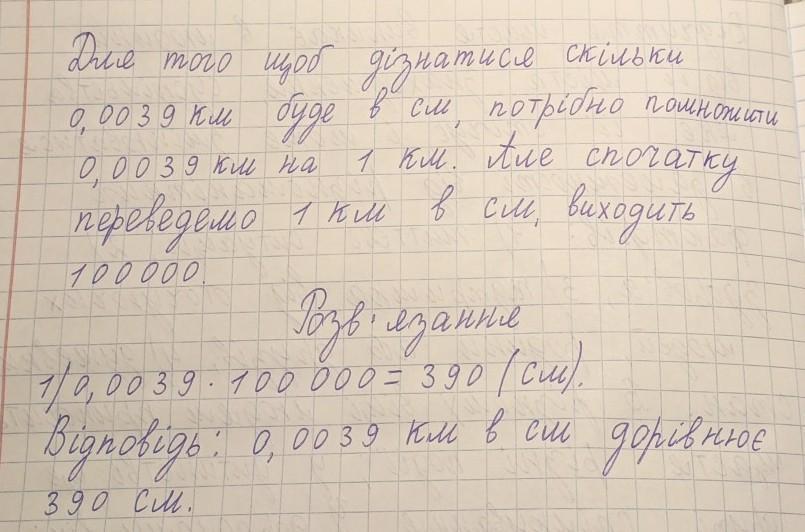 Для того щоб дізнатися скільки
0,0039 км буде в см, потрібно помножити
0,0039 км на 1 км. Але спочатку
переведемо 1 км в см, виходить
100000.
Розв'язання
1) 0,0039 · 100 000 = 390 (см).
Відповідь: 0,0039 км в см дорівнює
390 см.